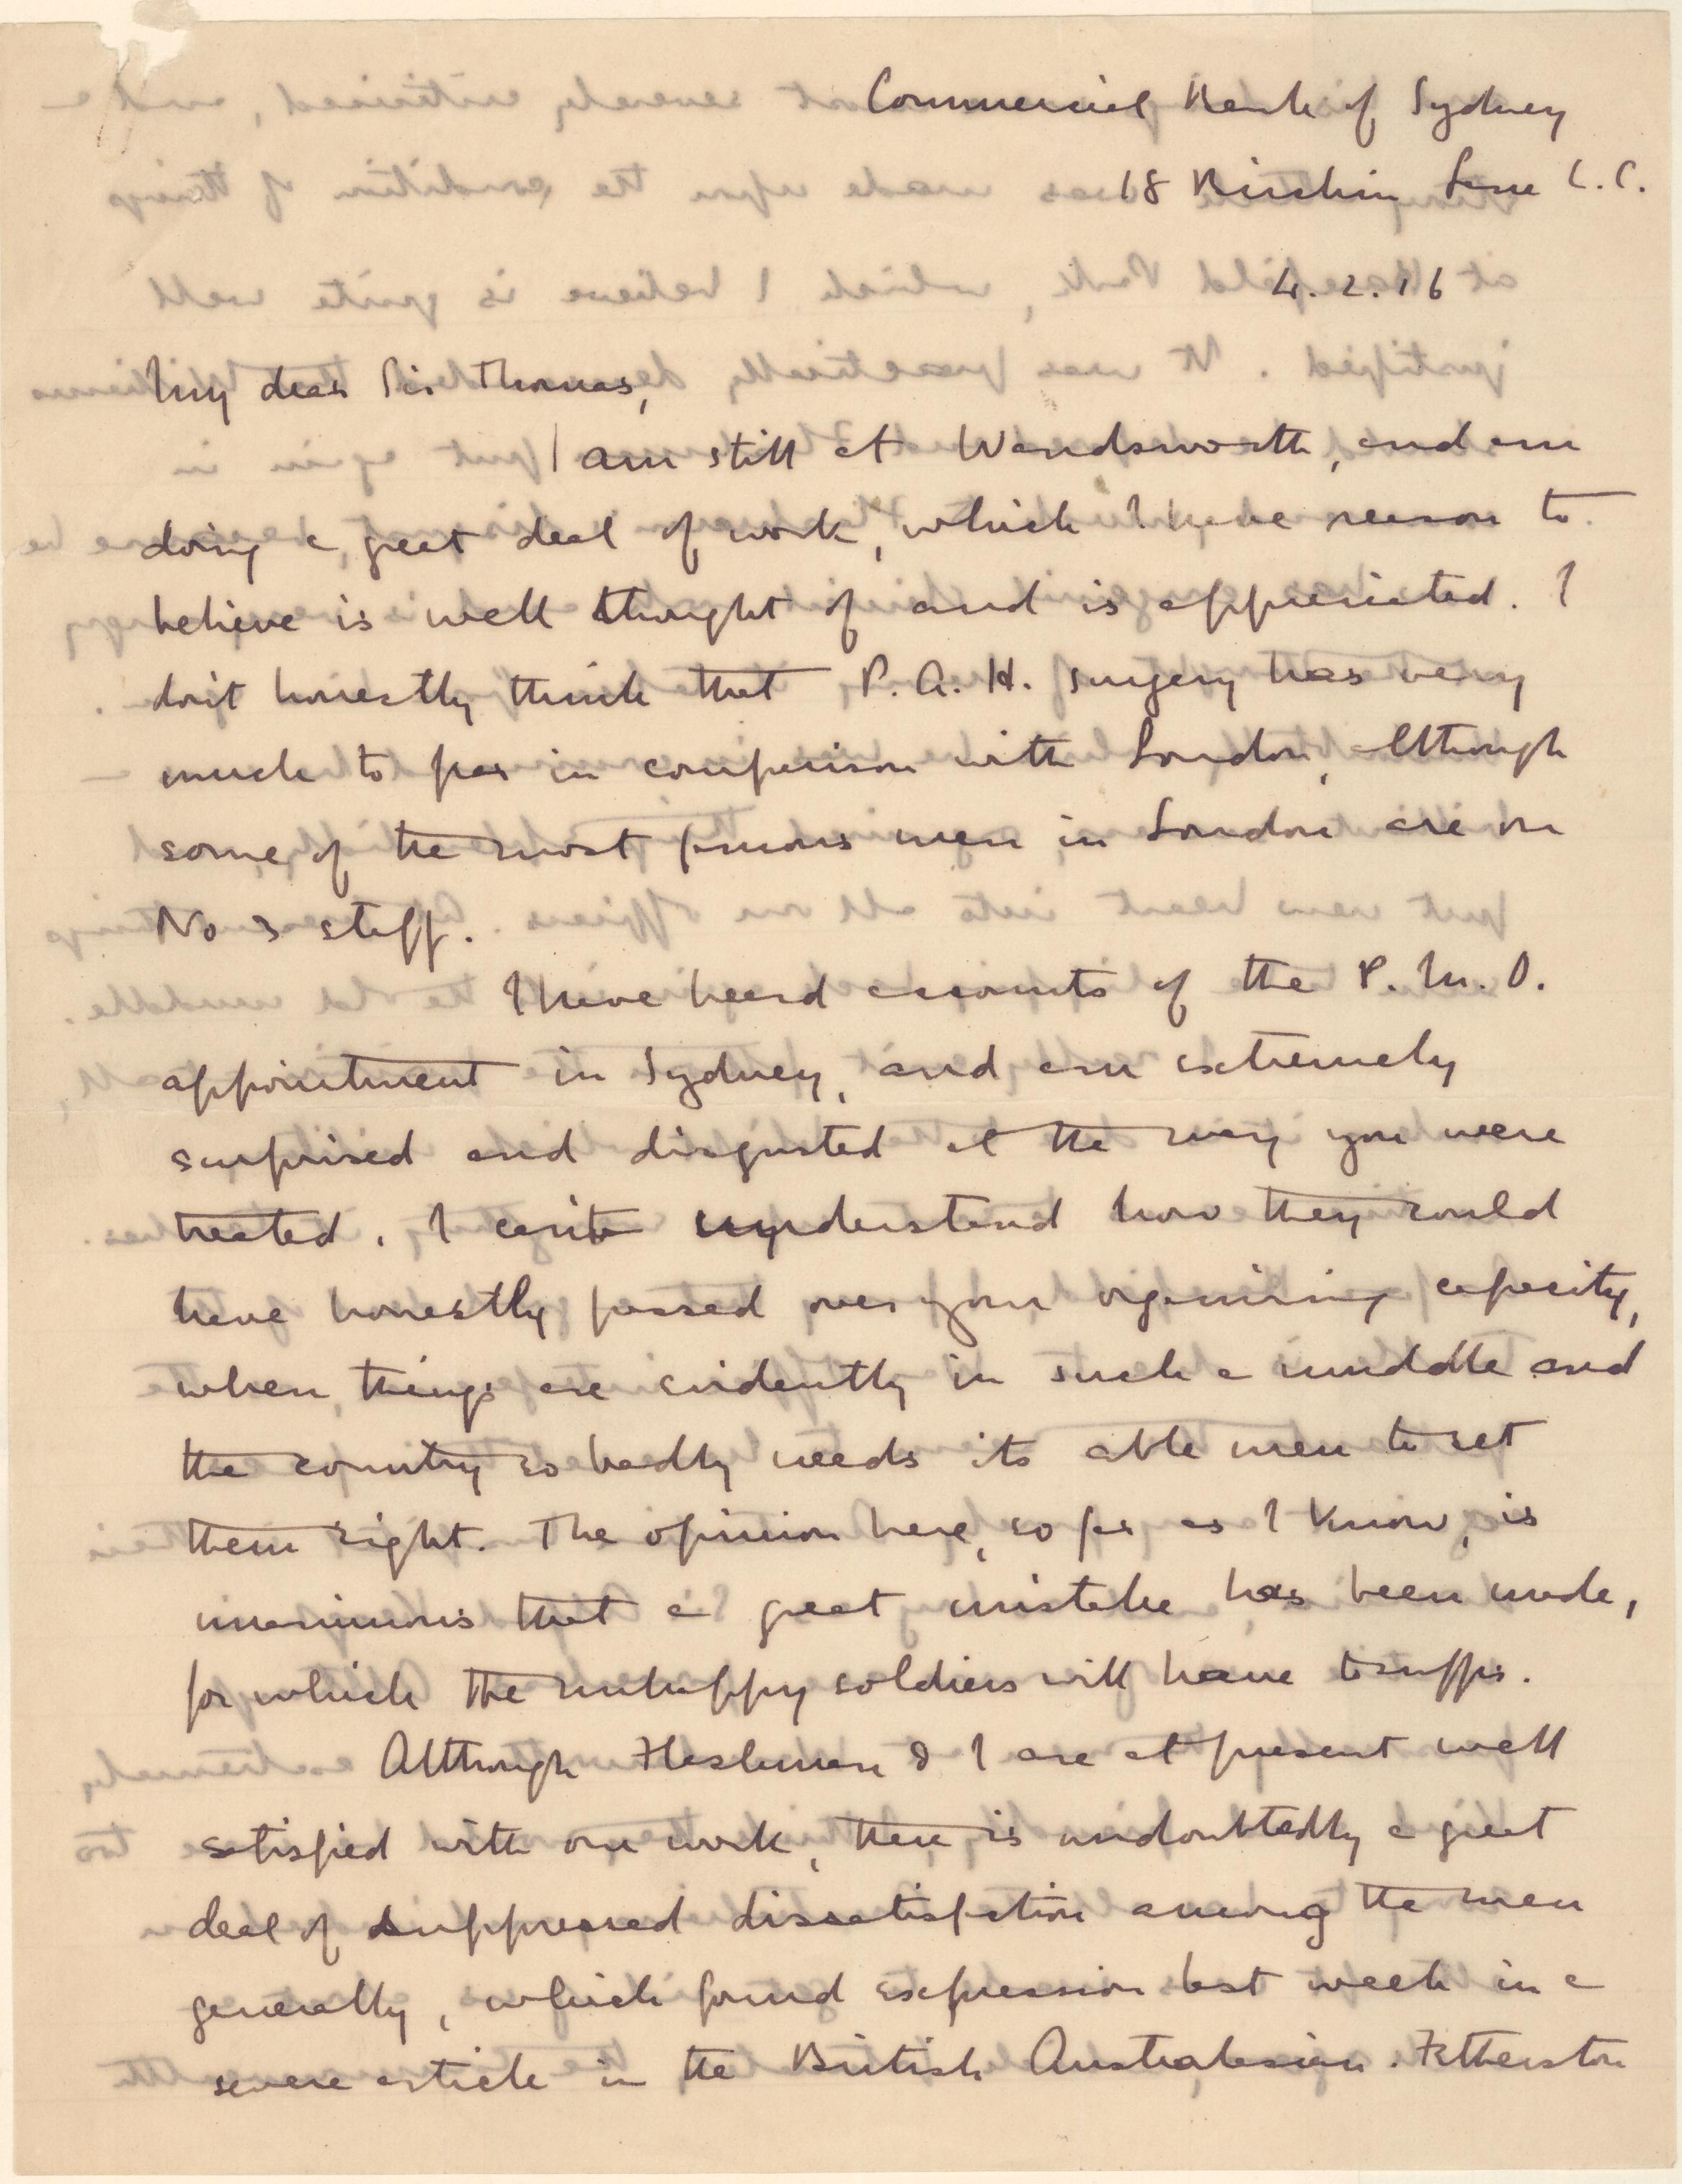 Commercial Bank of Sydney
18 Birchin Lane E.C.
4.2.16
My dear Sir Thomas,
I am still at Wandsworth, and am
doing a great deal of work, which I have reason to
believe is well thought of and is appreciated. I
don't honestly think that P.A.H. surgery has very
much to fear in comparison with London, although
some of the most famous men in London are on
No 3 staff.
I have heard accounts of the P.M.O.
appointment in Sydney, and am extremely
surprised and disgusted at the way you were
treated. I can't understand how they could
have honestly passed over your organising capacity,
when things are evidently in such a muddle and
the country so badly needs its able men to set
them right. The opinion here, so far as I know, is
unanimous that a great mistake has been made,
for which the unhappy soldiers will have to suffer.
Although Flashman & I are at present well
satisfied with our work, there is undoubtedly a great
deal of suppressed dissatisfaction among the men
generally, which found expression last week in a
severe article in the British Australasian. Fetherston